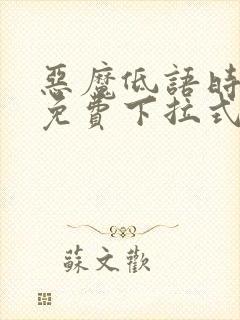 惡魔低語時
免費下拉式
蘇文歡